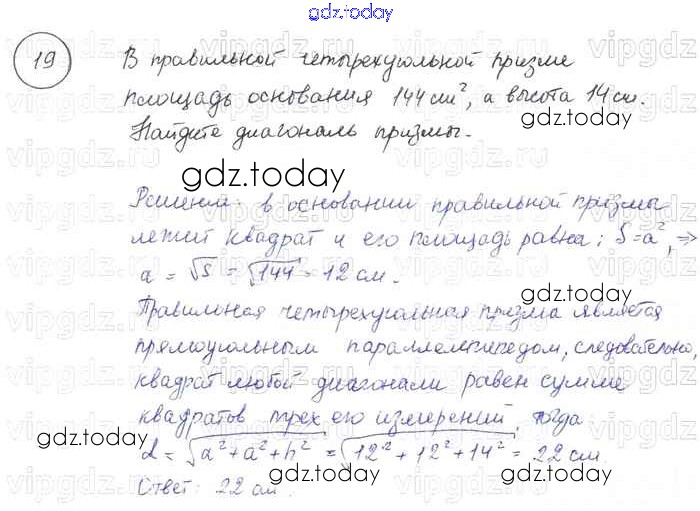 gdz.today
19
В правильной четырехугольной призме
площадь основания 144 см², а высота 14 см.
Найдите диагональ призмы.
gdz.today
Решение: в основании правильной призмы
лежит квадрат и его площадь равна: S=a², ⇒
a = √S = √144 = 12 см.
gdz.today
Правильная четырехугольная призма является
прямоугольным параллелепипедом, следовательно,
квадрат любой диагонали равен сумме
квадратов трех его измерений, тогда:
gdz.today
d = √a²+a²+h² = √12²+12²+14² = 22 см.
Ответ: 22 см.
gdz.today
vipgdz.ru